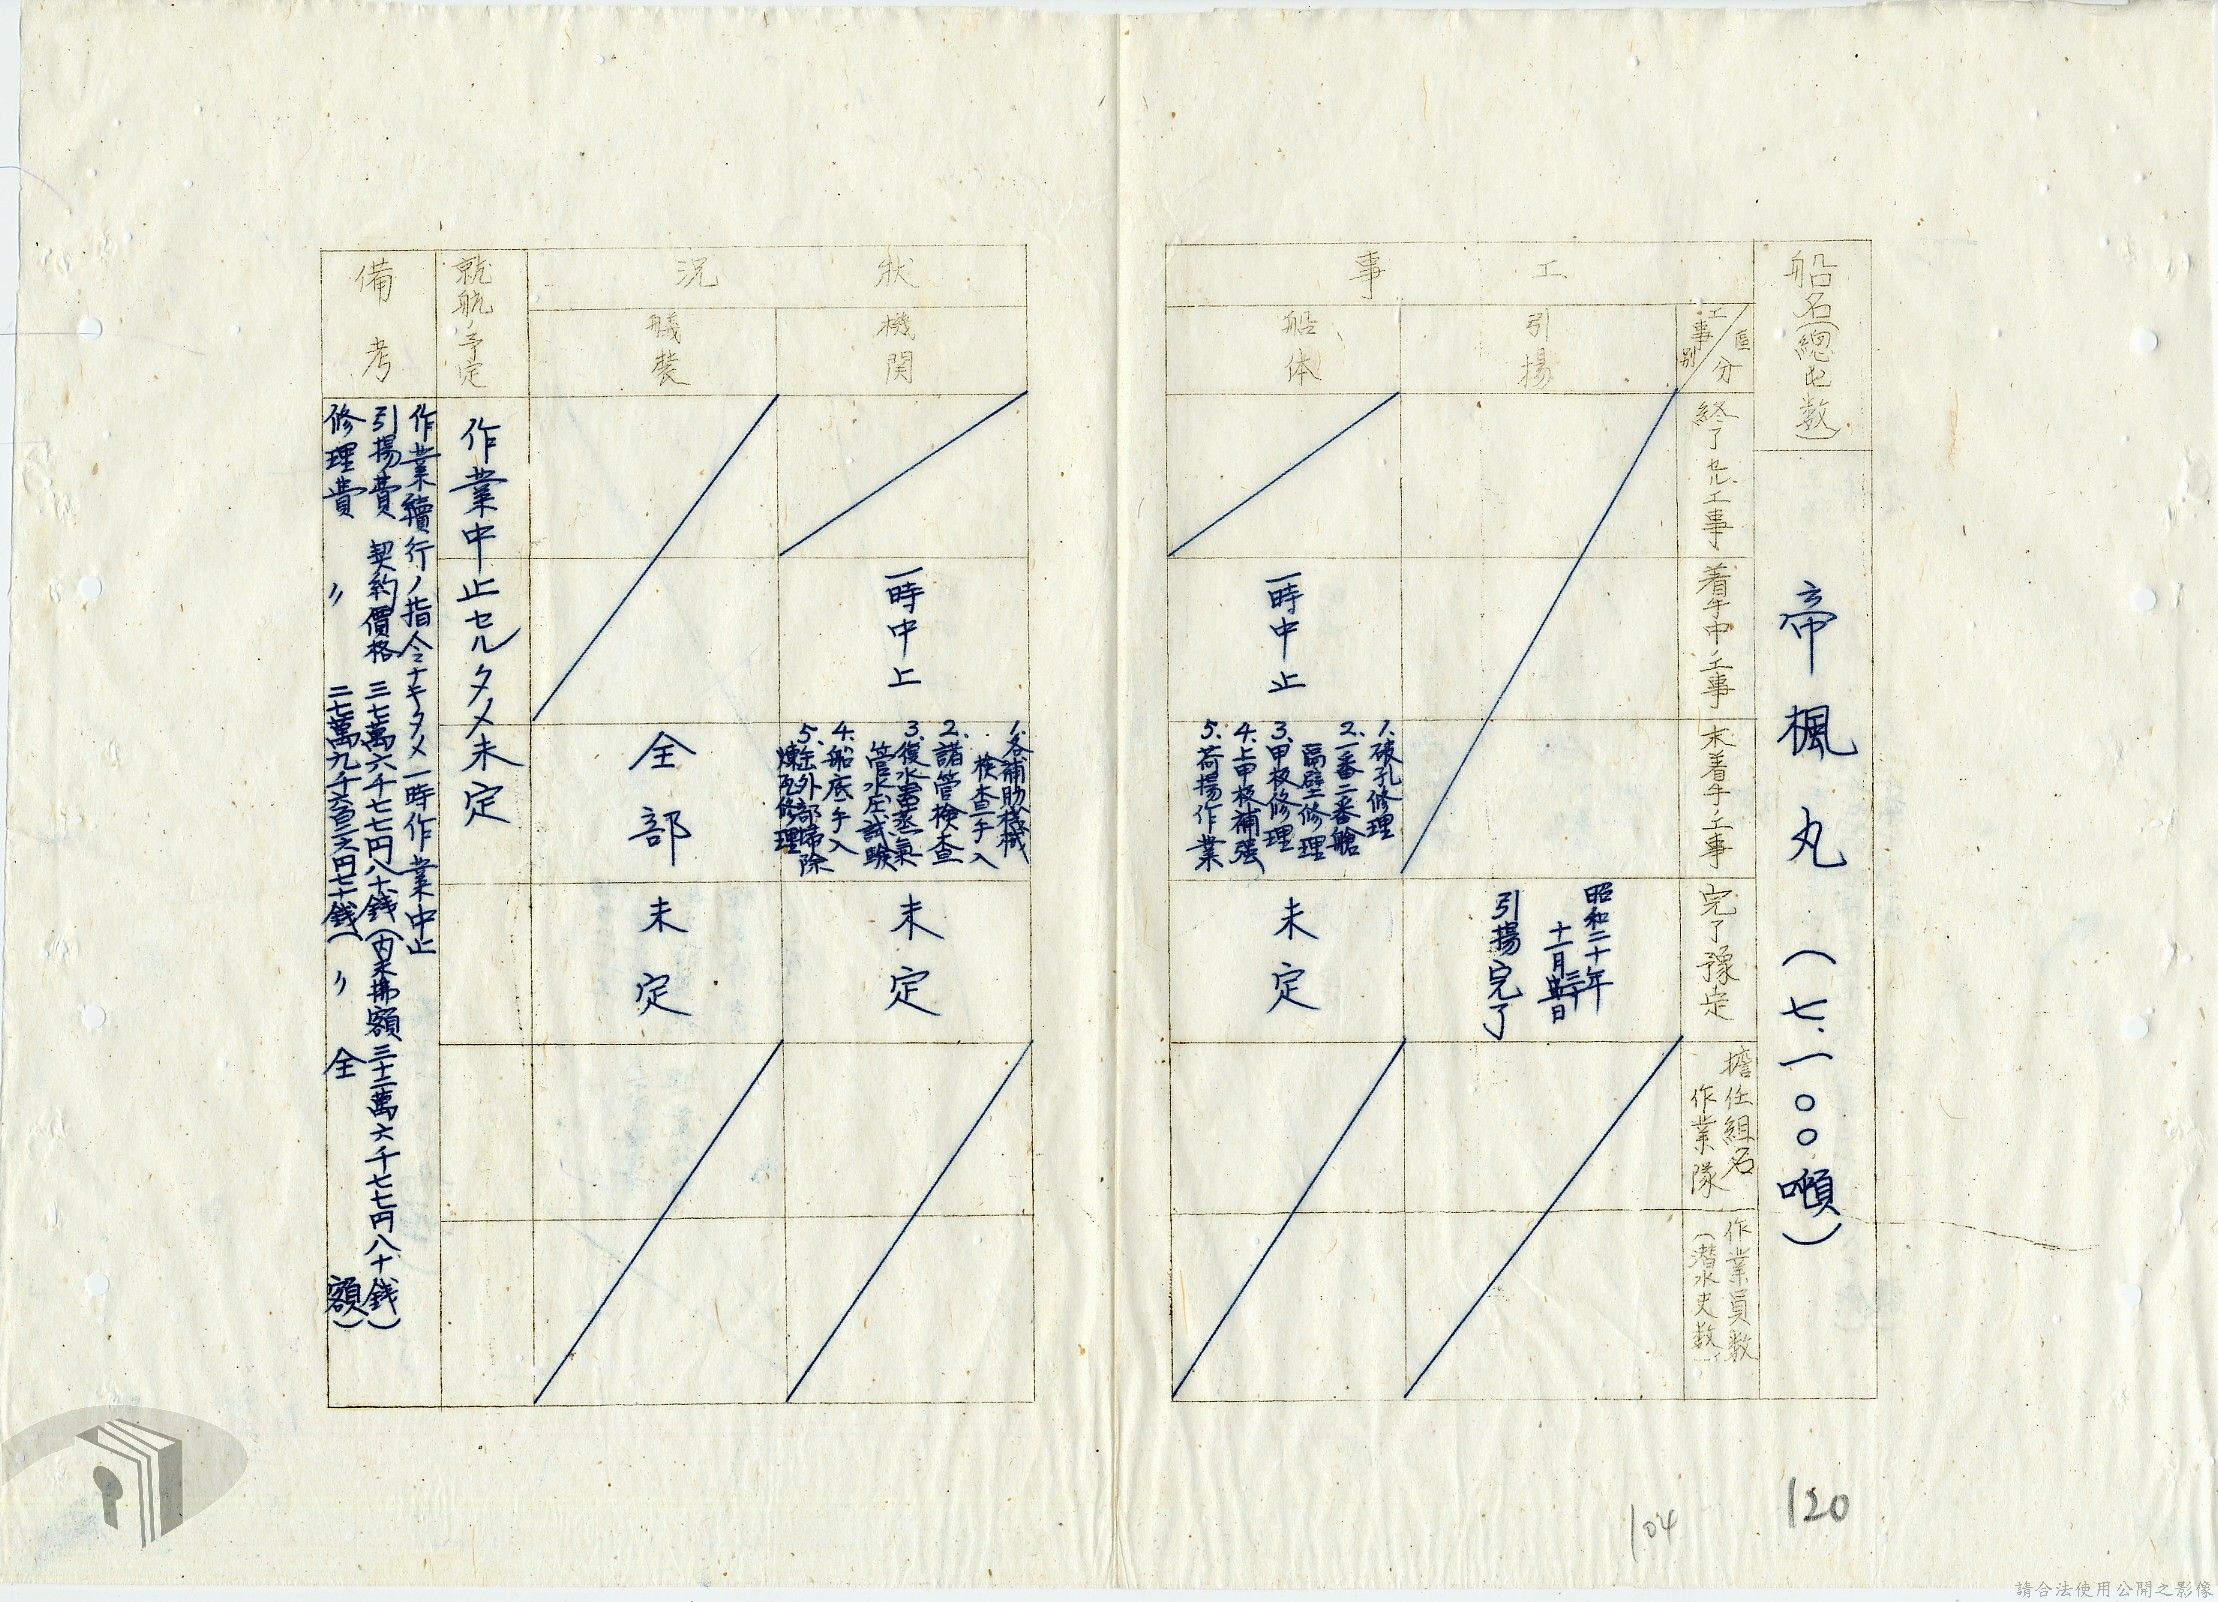 船名(總屯数)
帝楓丸(七.一〇〇噸)
工事
工事別
區分
終了セル工事
着手中ノ工事
未着手ノ工事
完了豫定
擔任組名
作業隊
作業員数
(潜水夫数)
引揚
昭和二十年
十一月
引揚完了
船体
一時中止
1.破孔修理
2.一番二番艙
隔壁修理
3.甲板修理
4.上甲板補強
5.荷揚作業
未定
狀況
機関
一時中止
1.各補助機械
検査手入
2.諸管検査
3.復水器蒸氣
管水圧試験
4.船底手入
5.缶外部掃除
煉瓦修理
未定
艤裝
全部
未定
就航ノ予定
作業中止セルタメ未定
備考
作業續行ノ指令ナキタメ一時作業中止
引揚費 契約價格 三七萬六千七七円八十錢(内未拂額 三十二萬六千七七円八十錢)
修理費 〃 二七萬九千六百 円七十錢( 〃 全額)
120
104
請合法使用公開之影像